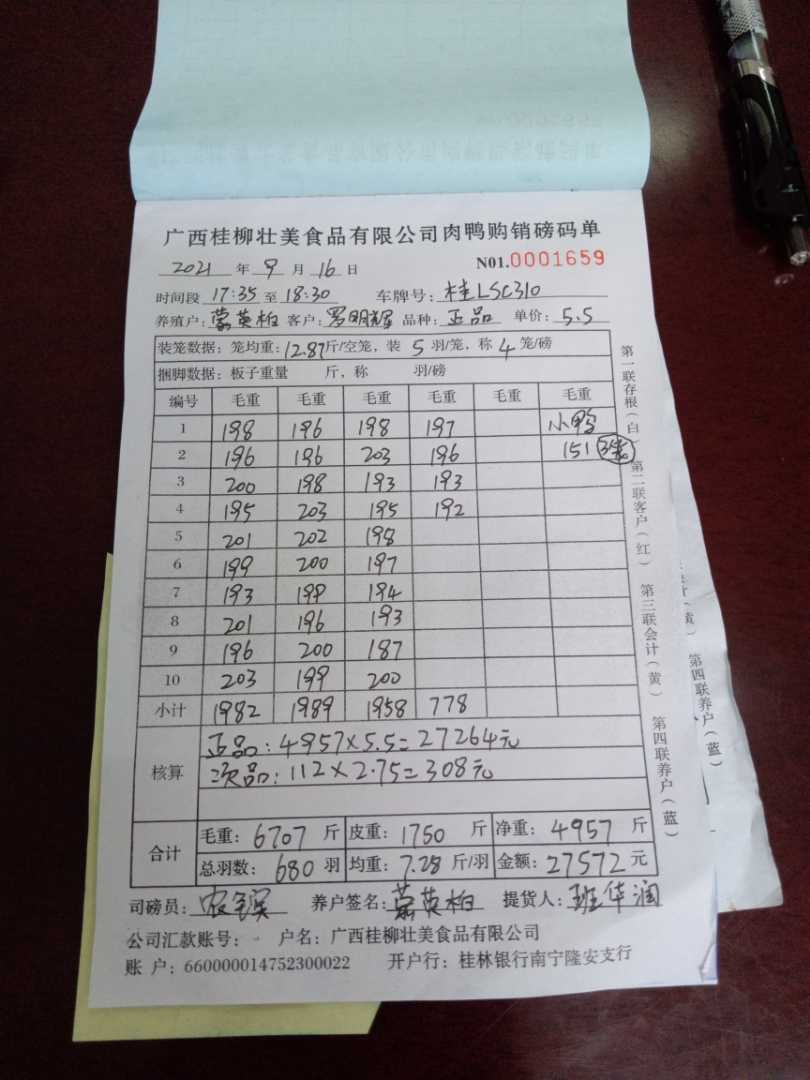 广西桂柳壮美食品有限公司肉鸭购销磅码单
2021 年 9 月 16 日 N01.0001659
时间段 17:35 至 18:30 车牌号: 桂LSC310
养殖户: 蒙英柏 客户: 罗明辉 品种: 正品 单价: 5.5
装笼数据: 笼均重: 12.87斤/空笼, 装 5 羽/笼, 称 4 笼/磅
捆脚数据: 板子重量 斤, 称 羽/磅
编号 毛重 毛重 毛重 毛重 毛重 毛重
1 198 196 198 197 小鸭
2 196 196 203 196 151
3 200 198 193 193
4 195 203 195 192
5 201 202 198
6 199 200 197
7 193 199 194
8 201 196 193
9 196 200 187
10 203 199 200
小计 1982 1989 1958 778
核算
正品: 4957×5.5=27264元
次品: 112×2.75=308元
合计
毛重: 6707 斤 皮重: 1750 斤 净重: 4957 斤
总羽数: 680 羽 均重: 7.28 斤/羽 金额: 27572 元
司磅员: 养户签名: 蒙英柏 提货人: 班华润
公司汇款账号: 户名: 广西桂柳壮美食品有限公司
账 户: 660000014752300022 开户行: 桂林银行南宁隆安支行
第一联存根(白) 第二联客户(红) 第三联会计(黄) 第四联养户(蓝)
第四联养户(蓝)